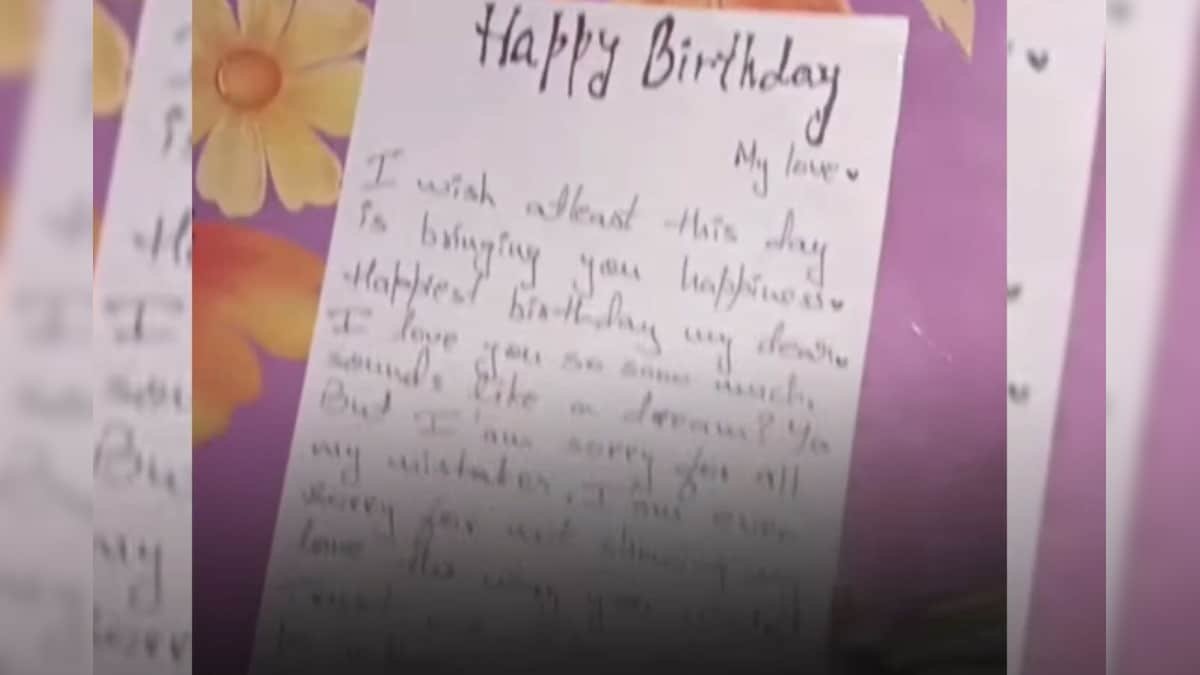 Happy Birthday
My love
I wish atleast this day
is bringing you happiness
Happiest birthday my dear
I love you so much,
sounds like a dream? Ya
But I'am sorry for all
my mistakes, I am even
sorry for not showing my
love the way you